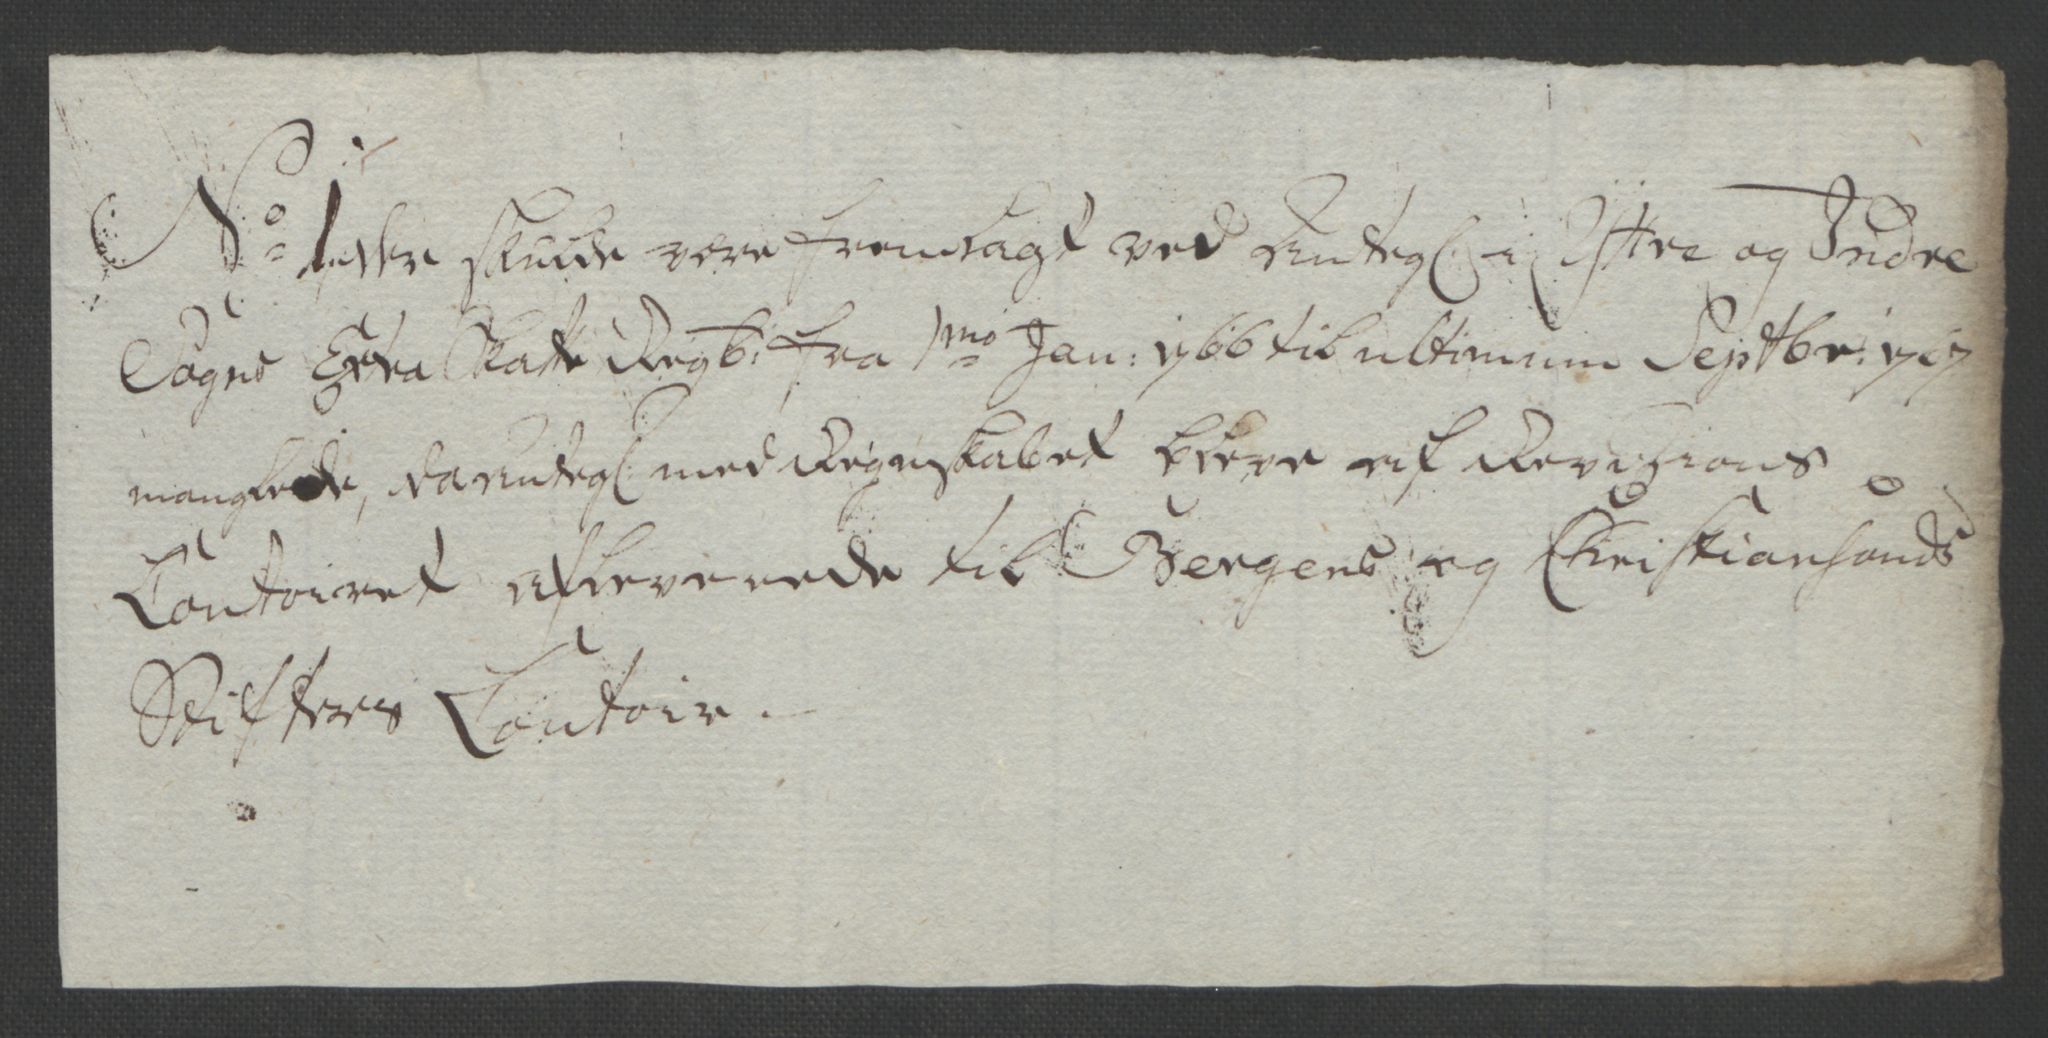 No 1 som skulde være fremlagt ved Antegn: i Yttre og Indre
Sogns Extra Skatte Regnb: fra 1mo Jan: 1766 til ultimum Septbr: 1767
manglede, da Antegn: med Regnskabet bleve af Revisions
Contoiret afleverede til Bergens og Christiansands
Stifters Contoir.